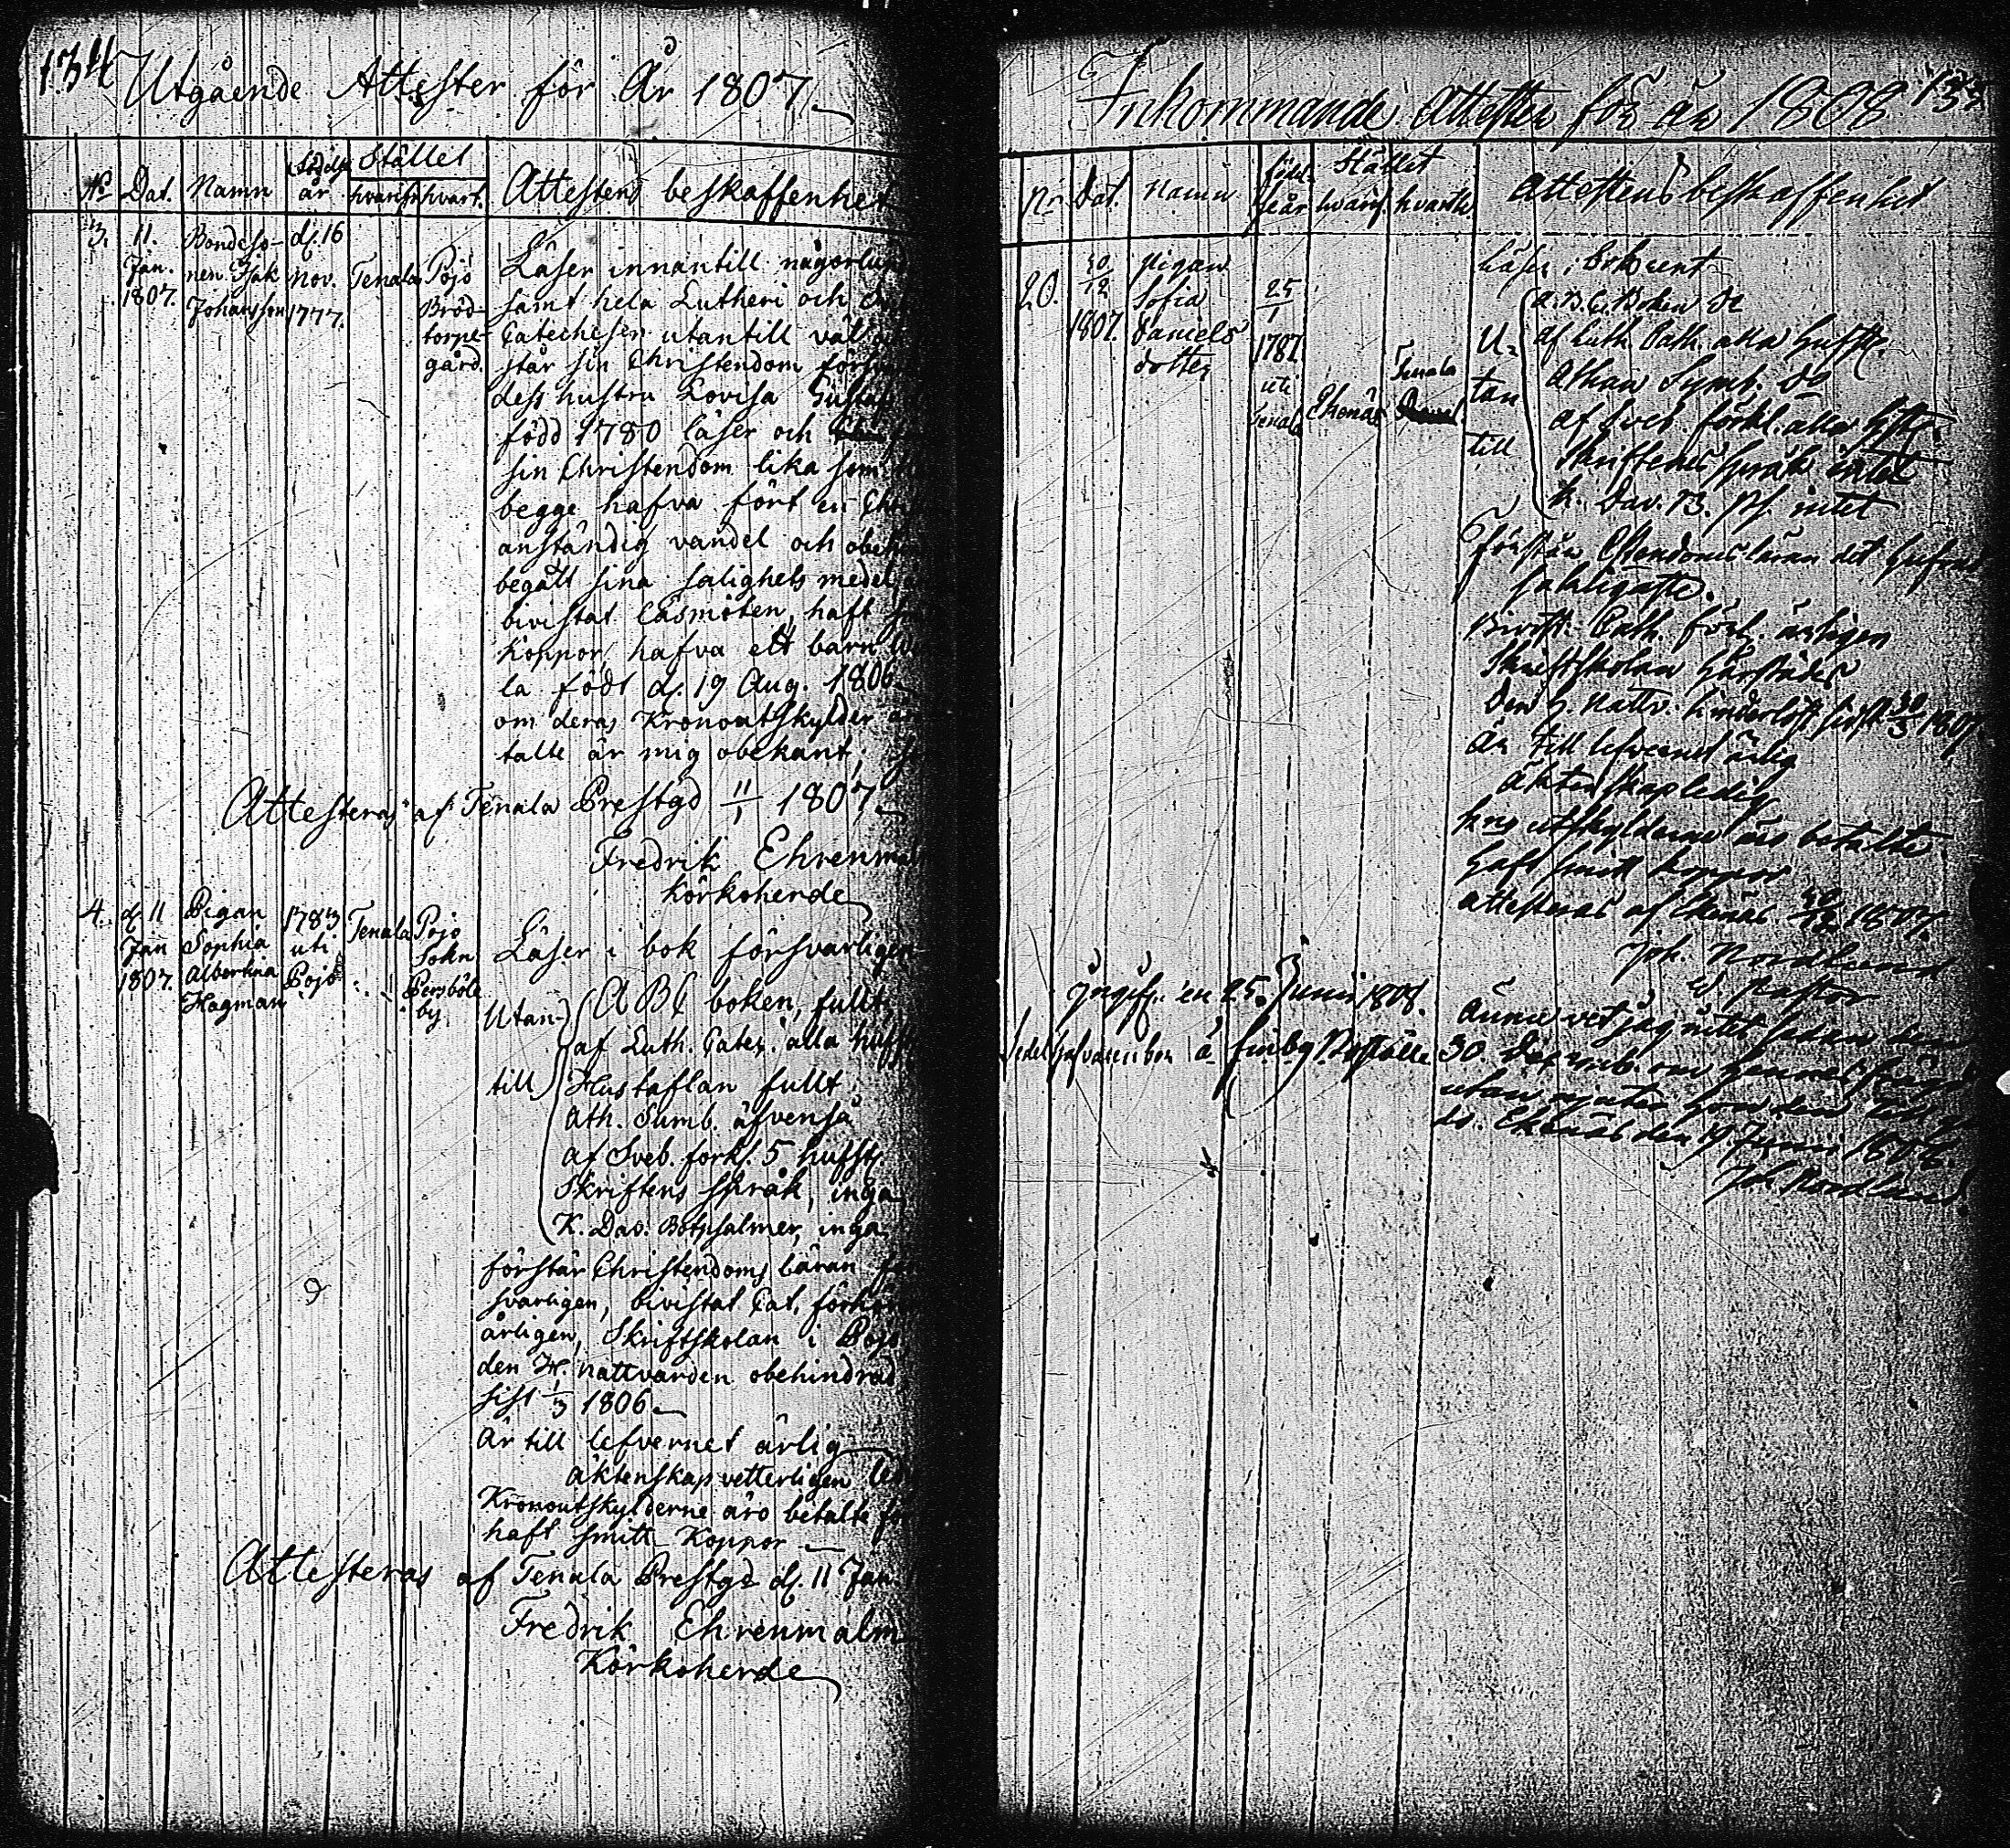 134
Utgående Attester för År 1807.
No Dat. Namn Föddes år Stället hvarifr. hvart. Attestens beskaffenhet
3. 11. Jan. 1807. Bondeso-
nen Isak
Johansson
d. 16
Nov.
1777.
Tenala
Pojo
Bröd-
torps-
gård.
Läser innantill någorlun
samt hela Lutheri och
Catecheser utantill väl
står sin Christendom förs
dess hustru Lovisa Gustaf
född 1780 läser och
sin Christendom lika som
begge hafva fört en Chr
anständig vandel och obehin
begått sina salighets medel
bivistat Läsmöten, haft
koppor, hafva ett barn
la födt d. 19 Aug. 1806
om deras Kronoutskylder är
talte är mig obekant,
Attesteras af Tenala Prestgd 11/1 1807
Fredrik Ehrenmalm
körkoherde
4. d. 11
Jan
1807.
Pigan
Sophia
Albertina
Hagman
1783
uti
Pojo
Tenala
Pojo
Sokn
Persböle
by
Läser i bok försvarligen
Utan-
till
A B C boken, fullt
af Luth. Catex. alla hufst
Hustaflan fullt
Ath. Sumb. äfvenså
af Sveb. förkl 5 hufst
Skriftens språk, inga
K. Dav. Botpsalmer, inga
förstår Christendoms läran för
svarligen, bivistat Cat. förhör
årligen, Skriftskolan i Pojo
den H. nattvarden obehindrad
sist 1/3 1806
Är till lefvernet ärlig
äktenskap vetterligen led
Kronoutskylderne äro betalte för
haft smitt Koppor
Attesteras af Tenala Prestgd d. 11 Jan
Fredrik Ehrenmalm
Körkoherde
Inkommande Attester för år 1808
Nr Dat. Namn födel-
se år Stället hvarif. hvarth. Attestens beskaffenhet
20. 30/12
1807.
Pigan
Sofia
Daniels
dotter
25/1
1787.
uti
Tenala
Ekenäs
Tenala
Läser i bok rent
U-
tan
till
A.B.C. Boken do
af Luth. Cath. alla hufst.
Athan Symb. do
af Sveb. förkl. alla hfst.
Skriftenes språk intet
k. Dav. B. Ps. intet
Förstår Chrstendomslären det hufvud
sakligaste.
Bivist. Cath. förh. årligen
Skriftskolan härstädes
den H. Nattv. hinderlöst sist 1807.
Är till lefvernet ärlig
äktenskap ledig
utskylderne äro betalte
haft smitt koppor
Attesteras af Ekenäs 30/12 1807.
Joh. Nordlund
v. Pastor
Ingifv. den 25 Junii 1808.
å Finby
Ännu vet jag intet sedan den
30. om hennes
utan
do. Ekenäs den 19 Junii 1808.
Joh Nordlund